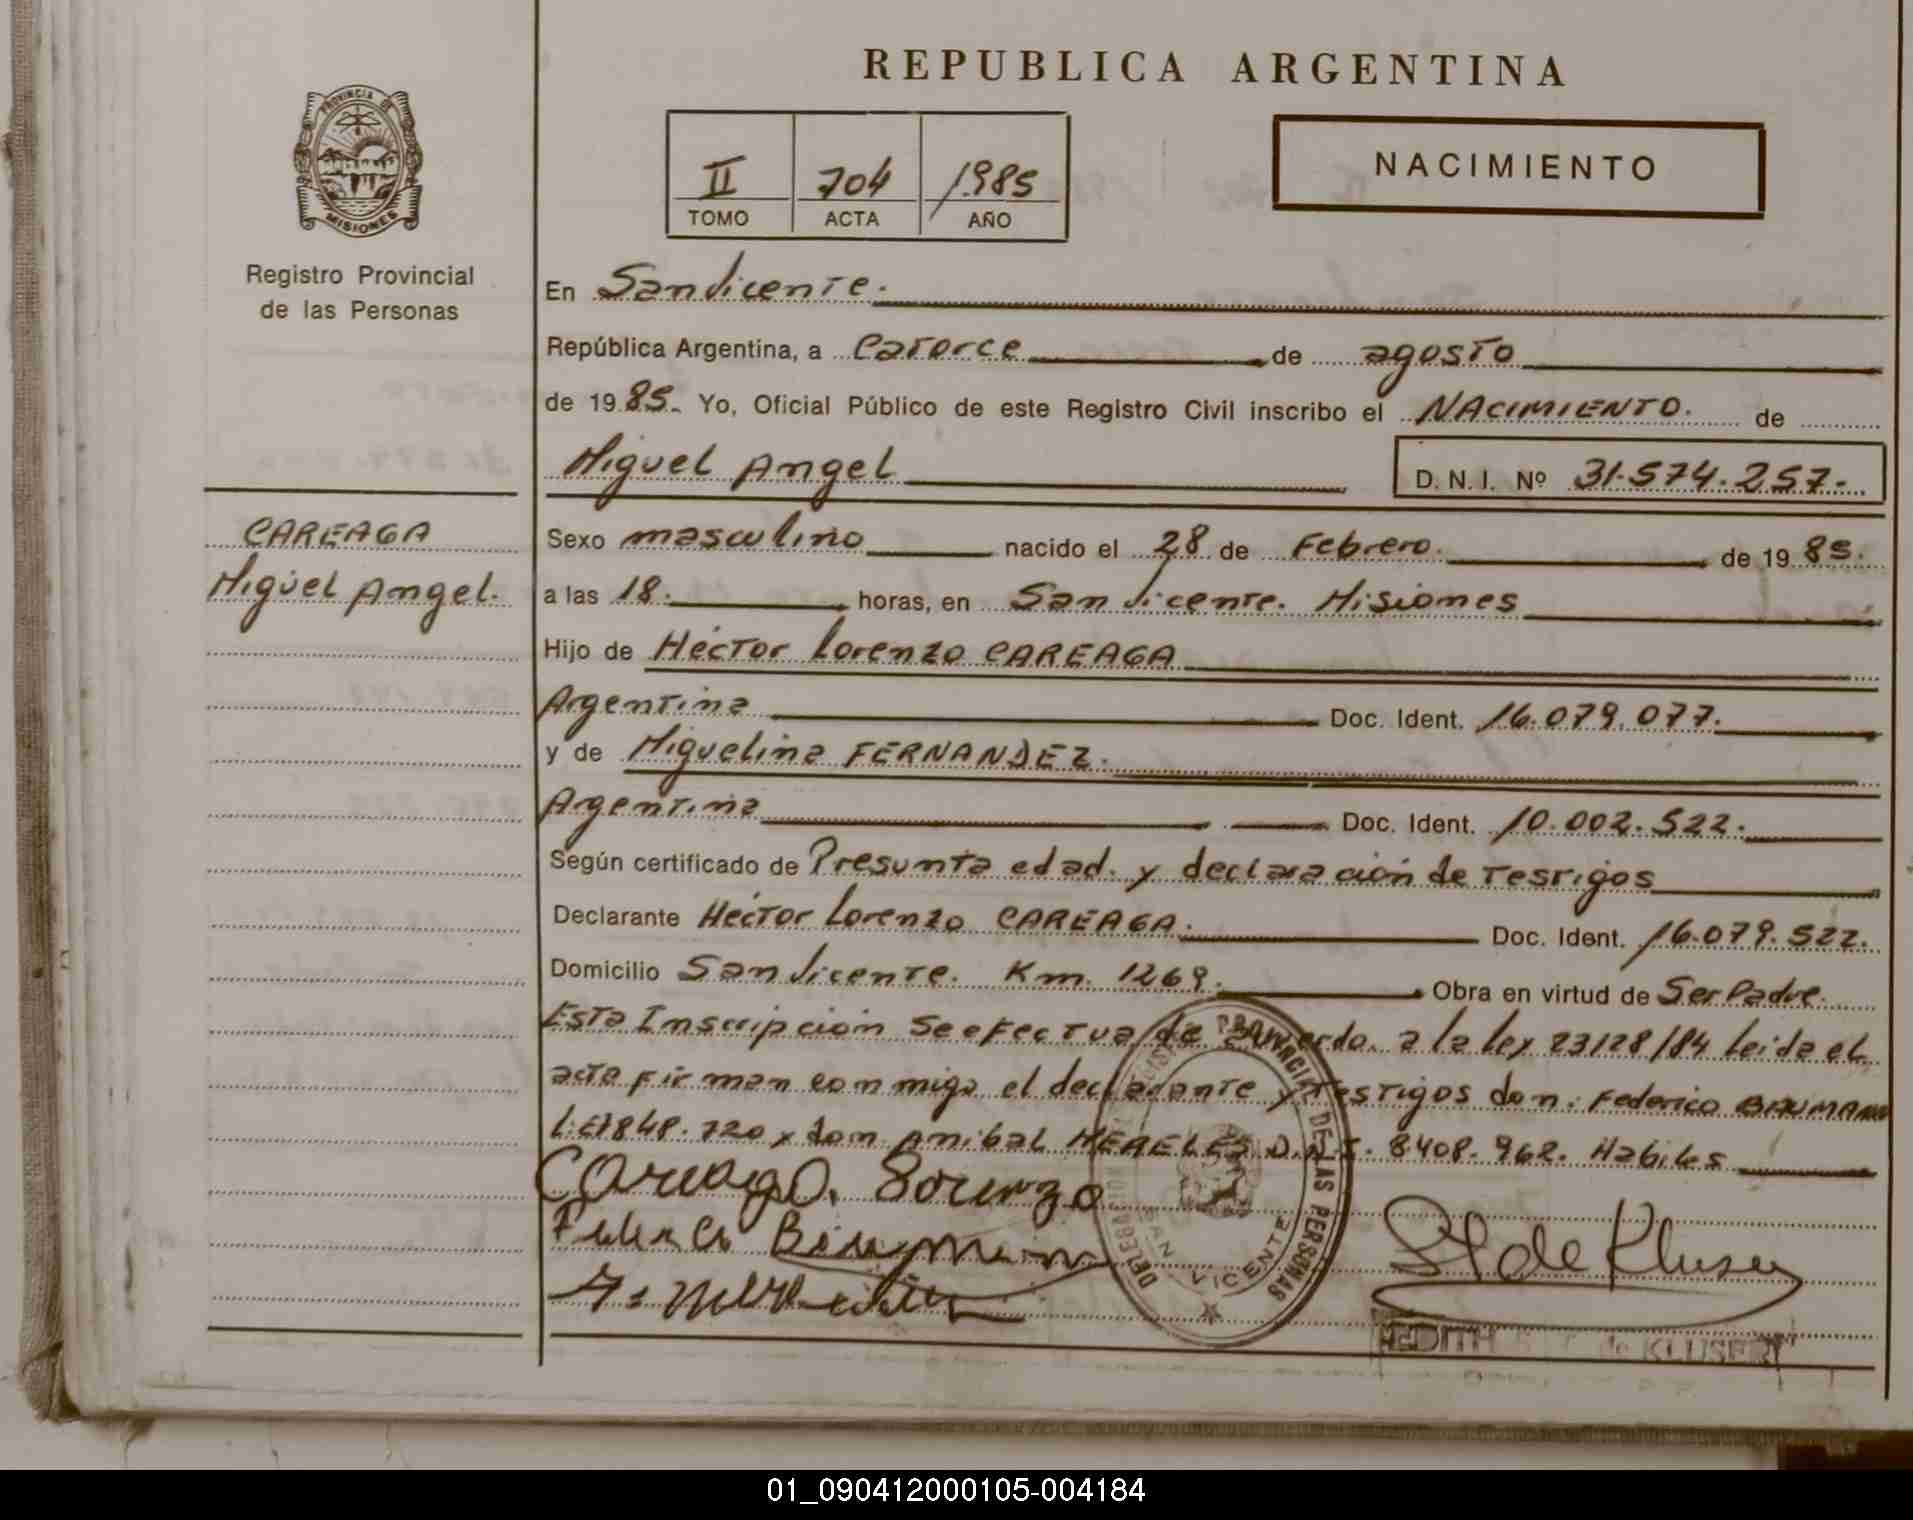 REPUBLICA ARGENTINA
PROVINCIA DE
MISIONES
Registro Provincial
de las Personas
II 704 1985
TOMO ACTA AÑO
NACIMIENTO
En San Vicente.
República Argentina, a catorce de agosto
de 19 85. Yo, Oficial Público de este Registro Civil inscribo el NACIMIENTO. de
Miguel Angel D. N. I. Nº 31.574.257.
CAREAGA
Miguel Angel.
Sexo masculino nacido el 28 de Febrero. de 19 85.
a las 18. horas, en San Vicente. Misiones
Hijo de Héctor Lorenzo CAREAGA
Argentina Doc. Ident. 16.079.077.
y de Miguelina FERNANDEZ.
Argentina Doc. Ident. 10.002.522.
Según certificado de Presunta edad. y declaración de Testigos
Declarante Héctor Lorenzo CAREAGA. Doc. Ident. 16.079.522.
Domicilio San Vicente. Km. 1269. Obra en virtud de Ser Padre.
Esta Inscripción se efectua de acuerdo a la ley 23128/84 leida el
acta firman conmigo el declarante y Testigos don: Federico BAUMANN
L.E 7848.720 y don Anibal MERELES D.N.I. 8408.962. Habiles
Careaga Lorenzo
DELEGACION REGISTRO PROVINCIAL DE LAS PERSONAS
SAN VICENTE
St de Kluser
EDITH de KLUSER
01_090412000105-004184